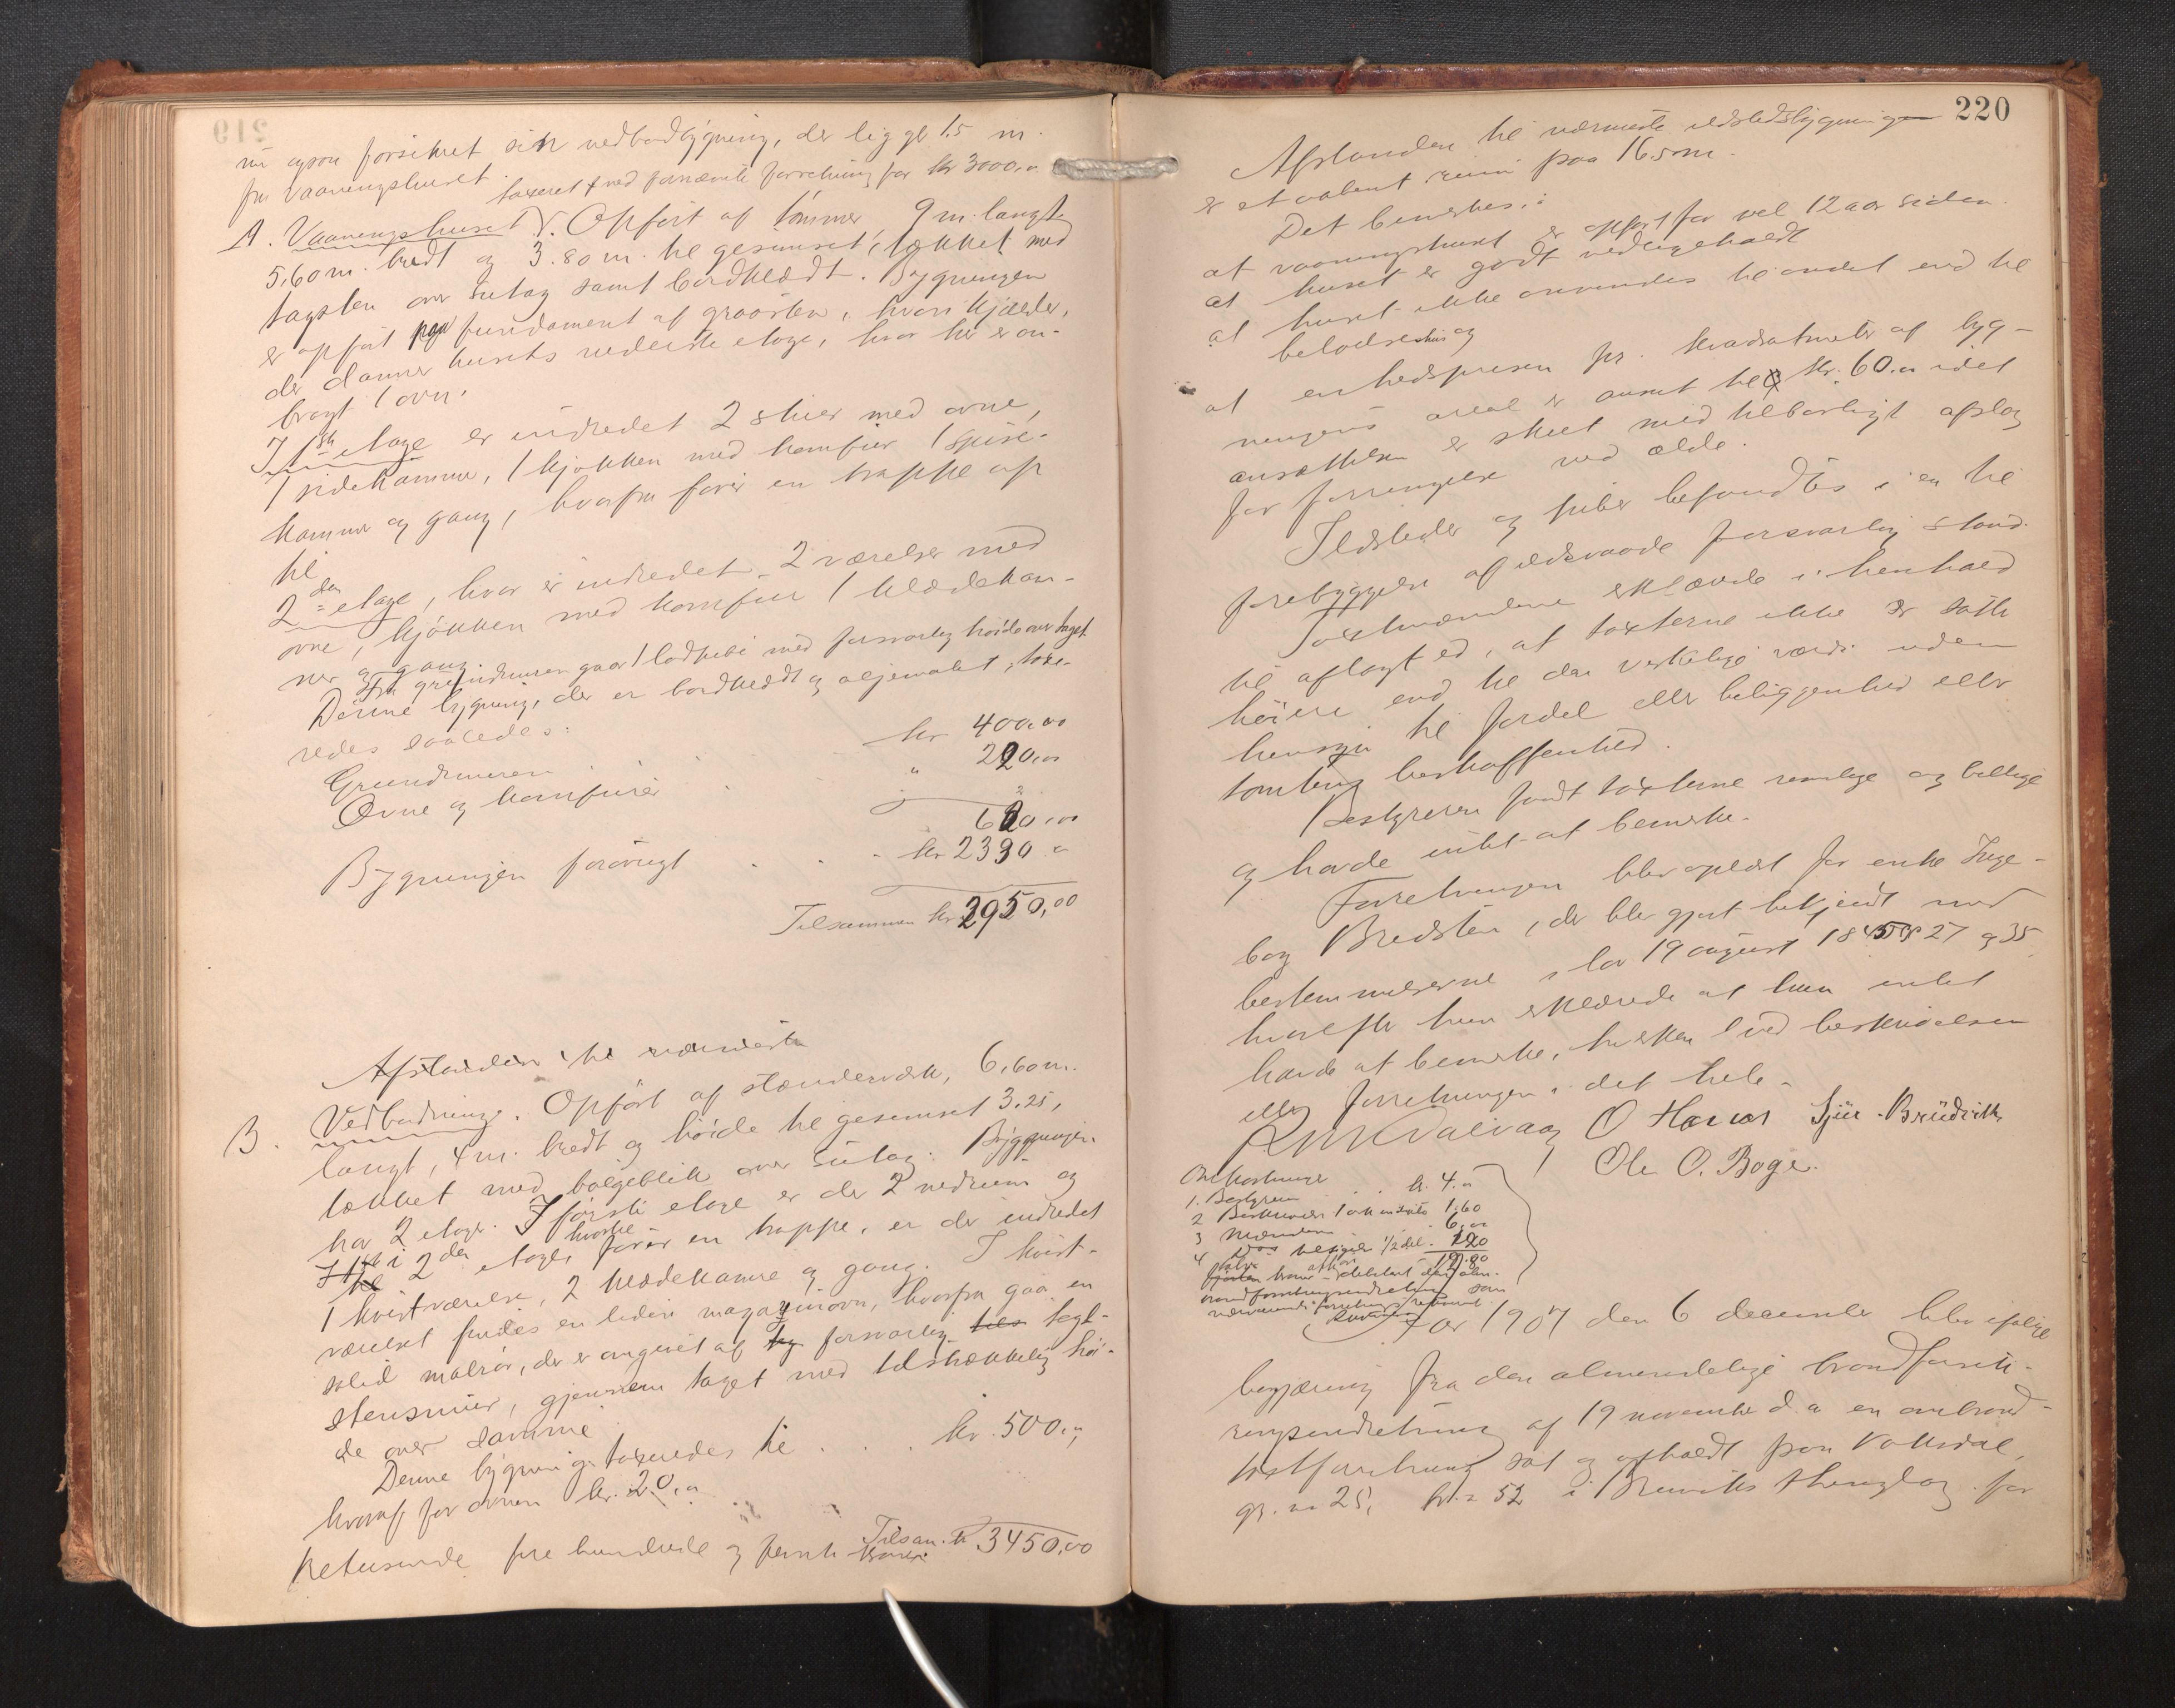 nu ogsaa forsikret sin vedbodbygning, der ligger 1.5 m.
fra vaaningshuset.
taxeret ved fornævnte forretning for kr 3000,00
A. Vaaningshuset. Opført af tømmer, 9 m. langt
5,60 m. bredt og 3.80 m. til gesimset, tækket med
tagsten over sutag samt bordklædt. Bygningen
er opført paa fundament af graasten, hvori kjælder,
der danner husets nederste etage, hvor her er an-
bragt 1 ovn.
I 1ste etage er indredet 2 stuer med ovne,
1 sidekammer, 1 kjøkken med komfur 1 spise-
kammer og gang, hvorfra fører en trappe op
til
2den etage, hvor er indredet 2 værelser med
ovne, kjøkken med komfur 1 klædekam-
mer og gang.
Fra grundmuren gaar 1 lodpibe med forsvarlig høide over taget
Denne bygning, der er bordklædt og oljemalet, taxe-
redes saaledes:
Grundmuren . . . kr 400,00
Ovne og komfurer . . " 220,00
620,00
Bygningen forøvrigt . . . kr 2330 "
Tilsammen kr 2950,00
Afstanden til nærmeste
B. Vedbodningen. Opført af stænderværk, 6,60 m.
langt, 4 m. bredt og høide til gesimset 3.25,
tækket med bølgeblik over sutag. Bygningen
har 2 etager. I første etage er der 2 vedrum og
i 2den etage, hvortil fører en trappe, er der indredet
1 kvistværelse, 2 klædekamre og gang. I kvist-
værelset findes en liden magazinovn, hvorfra gaar en
solid malrør, der er omgivet af forsvarlig tegl-
stensmur, gjennem taget med tilstrækkelig høi-
de over samme
Denne bygning taxeredes til . . . kr. 500,00
hvoraf for ovnen kr. 20,00
Tilsam. kr 3450,00
Tretusinde fire hundrede og femti kroner
220
Afstanden til nærmeste ildstedsbygningen
er et aabent rum paa 16.5 m.
Det bemerkes:
at vaaningshuset er opført for vel 12 aar siden.
at huset er godt vedligeholdt
at huset ikke anvendes til andet end til
beboelseshus og
at enhedsprisen pr. kvadratmeter af byg-
ningens areal er ansat til kr. 60.00 idet
ansættelsen er skeet med tilbørligt afslag
for forringelse ved ælde.
Ildsteder og piber befandtes i en til
forebyggelse af ildsvaade forsvarlig stand.
Taxtmændene erklærede i henhold
til aflagt ed, at taxterne ikke er satte
høiere end til den verkelige værdi uden
hensyn til fordel eller beliggenhed eller
tomtens beskaffenhed.
Bestyreren fandt taxterne rimelige og billige
og havde intet at bemerke.
Forretningen blev oplæst for enke Inge-
borg Bredsten, der blev gjort bekjendt med
bestemmelserne i lov 19 august 1845 §§ 27 og 35
hvorefter hun erklærede at hun intet
havde at bemerke, hverken ved beskrivelsen
eller forretningen i det hele.
O Hanes Sjur Brüdvik
Ole O. Boge.
Omkostninger
1. Bestyreren . . . kr. 4.00
2 Beskrivelse 1 ark 1,60
3 Mændene . 6,00
4 1/2 del . 1.20
12.80
Aar 1907 den 6 december blev ifølge
begjæring fra den almindelige brandforsik-
ringsindretning af 19 november d.a. en ombrand-
taxtforretning sat og afholdt paa Vaksdal,
gr. no 25, br. no 52 i Bruviks thinglag for